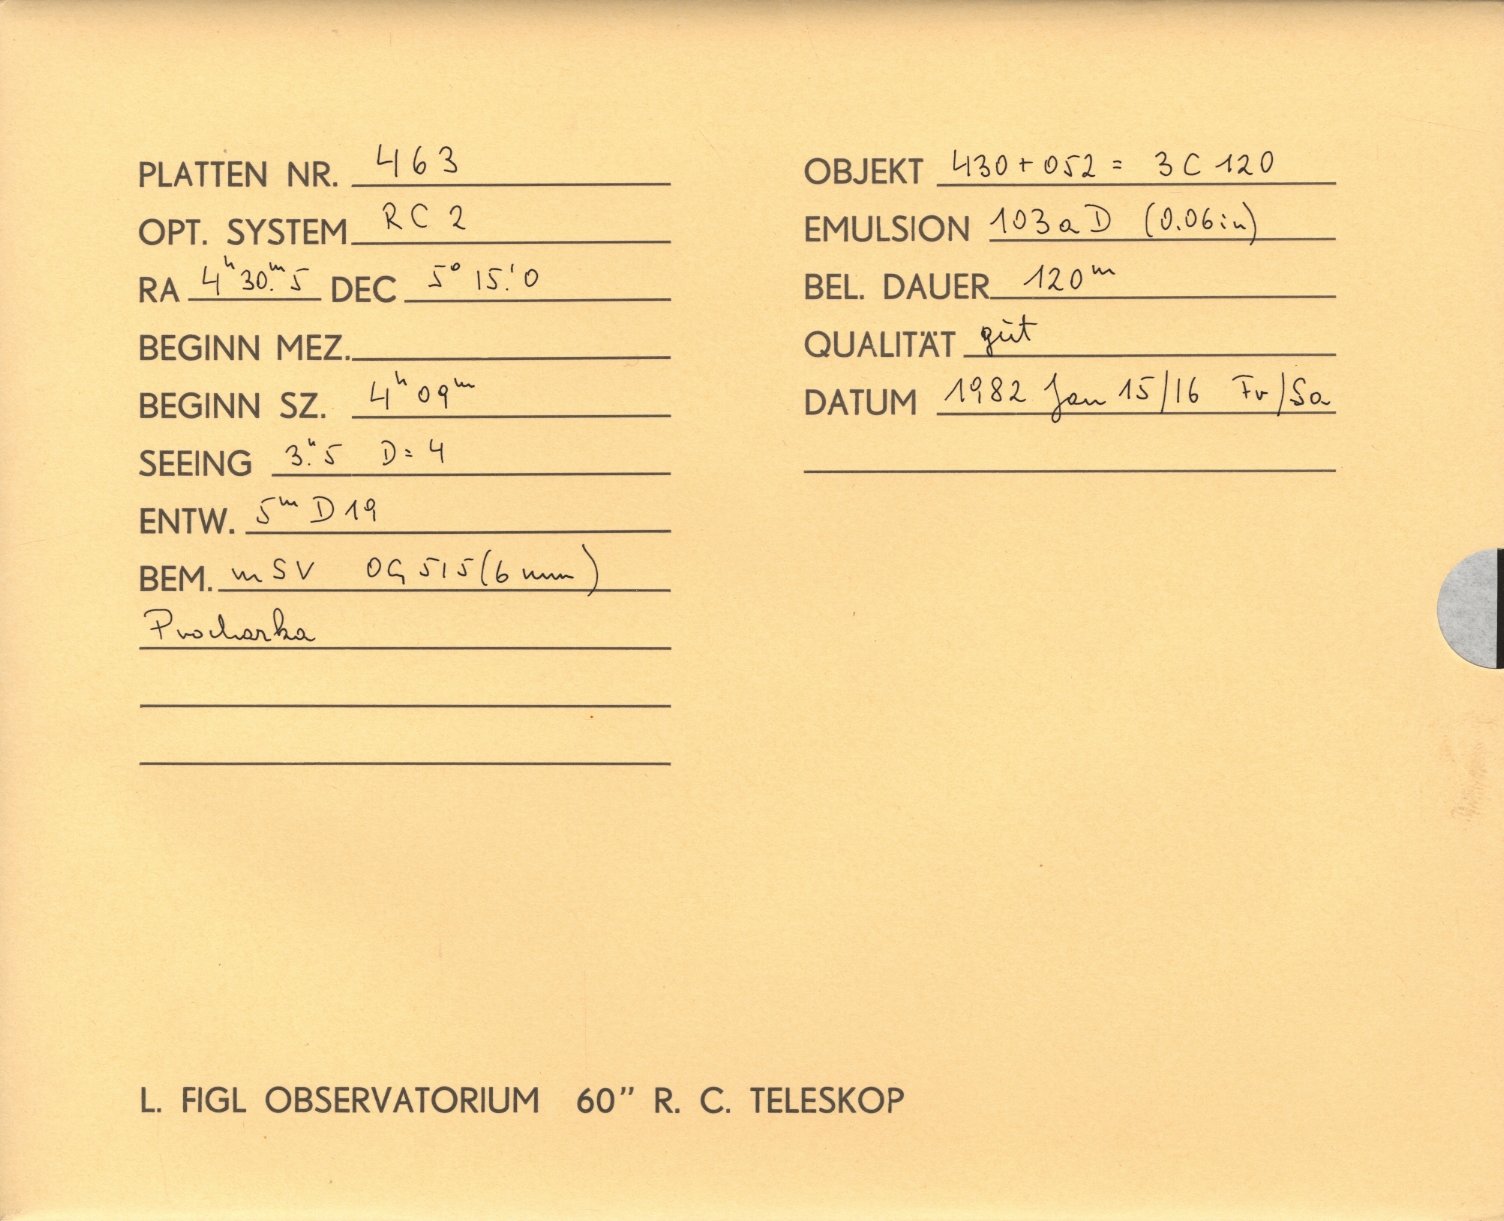 PLATTEN NR. 463
OPT. SYSTEM RC 2
RA 4ʰ30ᵐ.5 DEC 5° 15'.0
BEGINN MEZ.
BEGINN SZ. 4ʰ09ᵐ
SEEING 3".5 D=4
ENTW. 5ᵐ D19
BEM. mSV OG 515 (6 mm)
Procharka
OBJEKT 430+052 = 3C 120
EMULSION 103aD (0.06in)
BEL. DAUER 120ᵐ
QUALITÄT gut
DATUM 1982 Jan 15/16 Fr/Sa
L. FIGL OBSERVATORIUM 60” R. C. TELESKOP